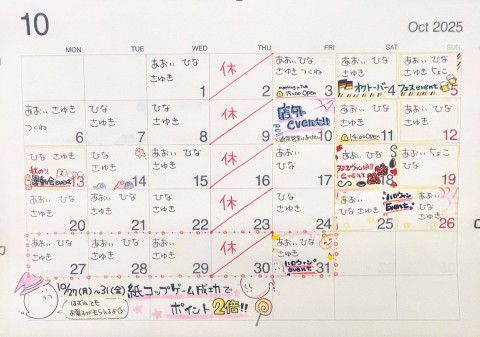 10
Oct 2025
MON TUE WED THU FRI SAT SUN
あおぃ ひな
さゆき
1
休
2
あおぃ ひな
さゆき つくね
15:00 Open
3
あおぃ ひな
さゆき
オクトーバー
4
あおぃ ひな
さゆき ちょこ
フェスevent
5
あおぃ さゆき
つくね
6
ひな
さゆき
7
ひな
さゆき
8
休
9
店外
event!!
10
あおぃ ひな
さゆき
15:00 Open
11
あおぃ ひな
さゆき
12
あおぃ ひな
さゆき
秋の!!
運動会
13
ひな
さゆき
14
あおぃ ひな
さゆき
15
休
16
あおぃ ひな
さゆき
17
あおぃ ひな
さゆき
event
18
あおぃ ちょこ
ひな
19
あおぃ ひな
さゆき
20
あおぃ ひな
さゆき
21
あおぃ ひな
さゆき
22
休
23
あおぃ ひな
さゆき
24
あおぃ
ひな さゆき
ハロウィン
Event
25
あおぃ
ひな
さゆき
26
あおぃ ひな
さゆき
27
あおぃ ひな
さゆき
28
あおぃ
さゆき
29
休
30
あおぃ ひな
さゆき
ハロウィン
event
31
10/27(月)~31(金) 紙コップゲーム成功で
ポイント2倍!!
はずれても
お菓子がもらえるよ